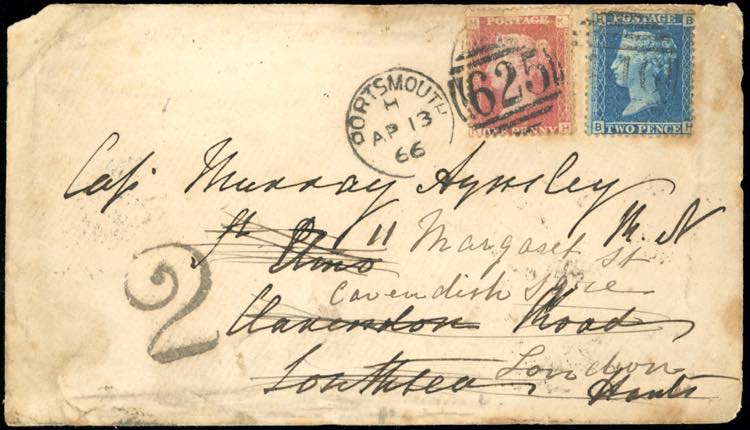 POSTAGE
ONE PENNY
POSTAGE
TWO PENCE
625
PORTSMOUTH
H
AP 13
66
Cap Murray Aynsley
R. N
St Elmo
11 Margaset St
Cavendish Sqre
Clarendon Road
Southsea
London
Hants
2